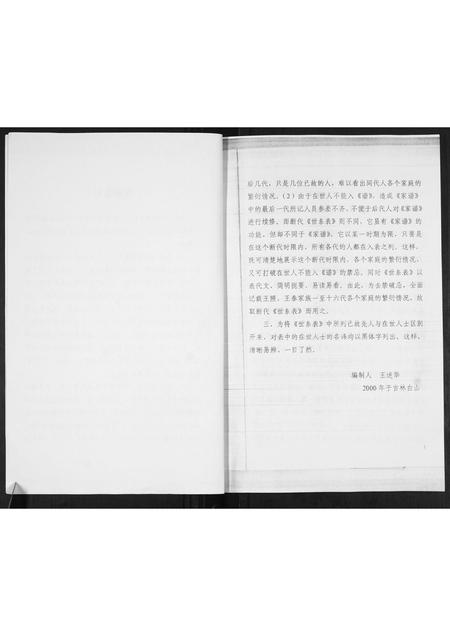 后几代，只是几位已故的人，难以看出同代人各个家庭的
繁衍情况。（2）由于在世人不能入《谱》，造成《家谱》
中的最后一代所记人员参差不齐，不便于后代人对《家谱》
进行续修。而断代《世系表》则不同，它虽有《家谱》的
功能，但却不同于《家谱》。它以某一时期为限，只要是
在这个断代时限内，所有各代的人都在入表之列。这样，
既可清楚地展示这个断代时限内，各个家庭的繁衍情况，
又可打破在世人不能入《谱》的禁忌。同时《世系表》以
表代文，简明扼要，易读易看。由此，为去禁破忌，全面
记载王 王参家族一至十六代各个家庭的繁衍情况，故
取断代《世系表》而用之。
三、为将《世系表》中所列已故先人与在世人士区别
开来，对表中的在世人士的名讳均以黑体字列出。这样，
清晰易辨，一目了然。
编制人 王述华
2000年于吉林白山